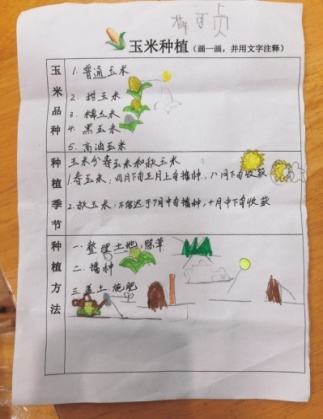 贞
玉米种植（画一画，并用文字注释）
玉米品种
1. 普通玉米
2. 甜玉米
3. 糯玉米
4. 黑玉米
5. 高油玉米
种植季节
玉米分春玉米和秋玉米
1.春玉米：四月下旬至五月上旬播种，八月下旬收获
2.秋玉米：不能迟于7月中旬播种，十月中下旬收获
种植方法
一. 整理土地，除草
二. 播种
三. 盖土施肥